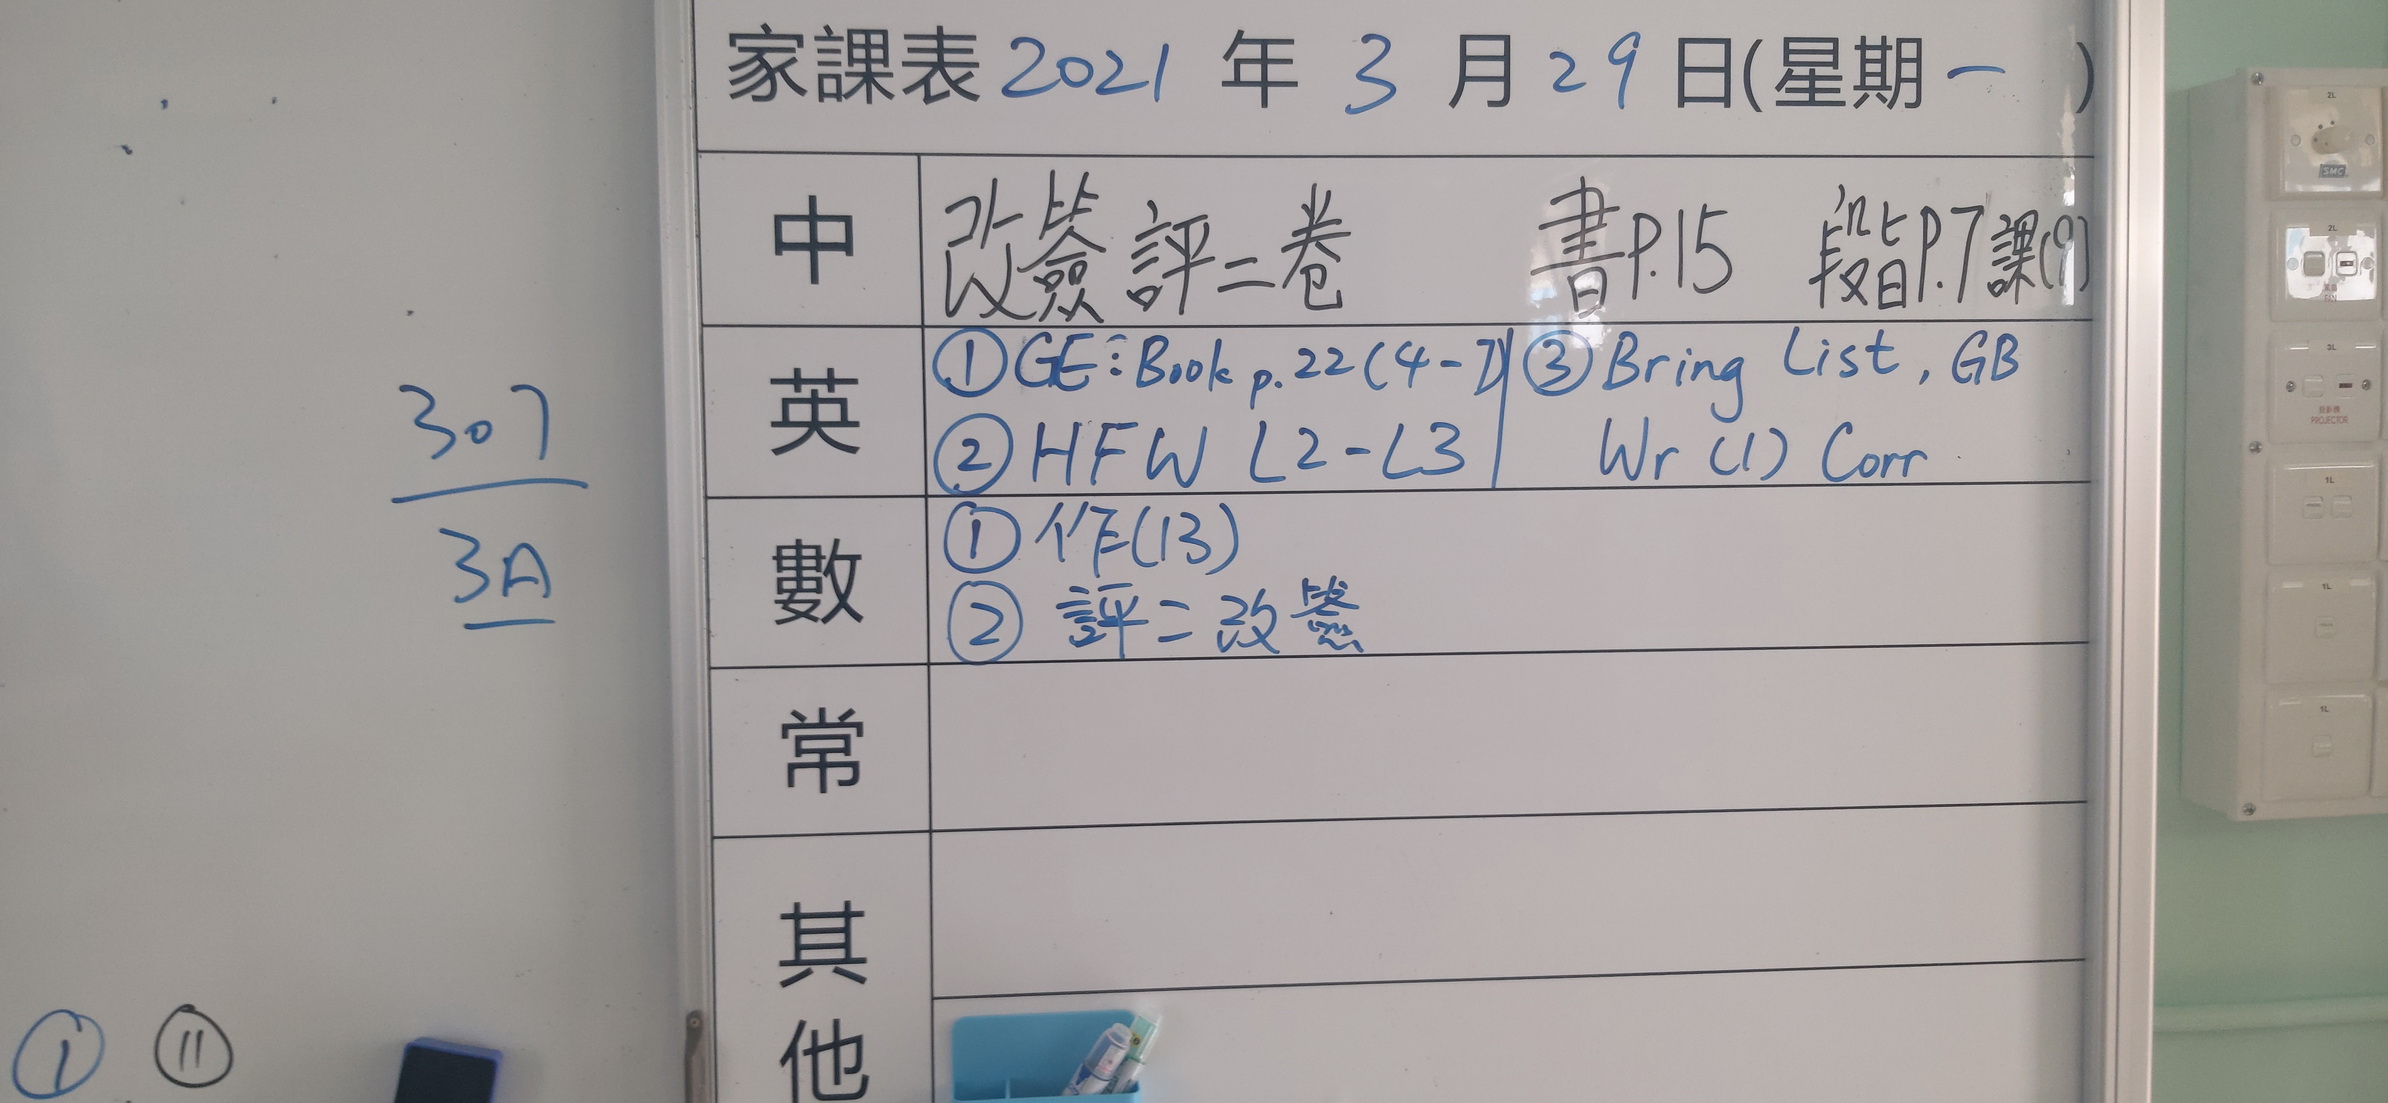 家課表 2021 年 3 月 29 日(星期一)
中 改簽評二卷 書P.15 段皆P.7課(9)
英 ①GE: Book p.22(4-7) ③Bring List, GB
②HFW L2-L3 Wr (1) Corr
數 ①作(13)
②評二改簽
常
其
他
307
3A
① ⑪
2L
SMC
2L
3L
PROJECTOR
1L
1L
1L